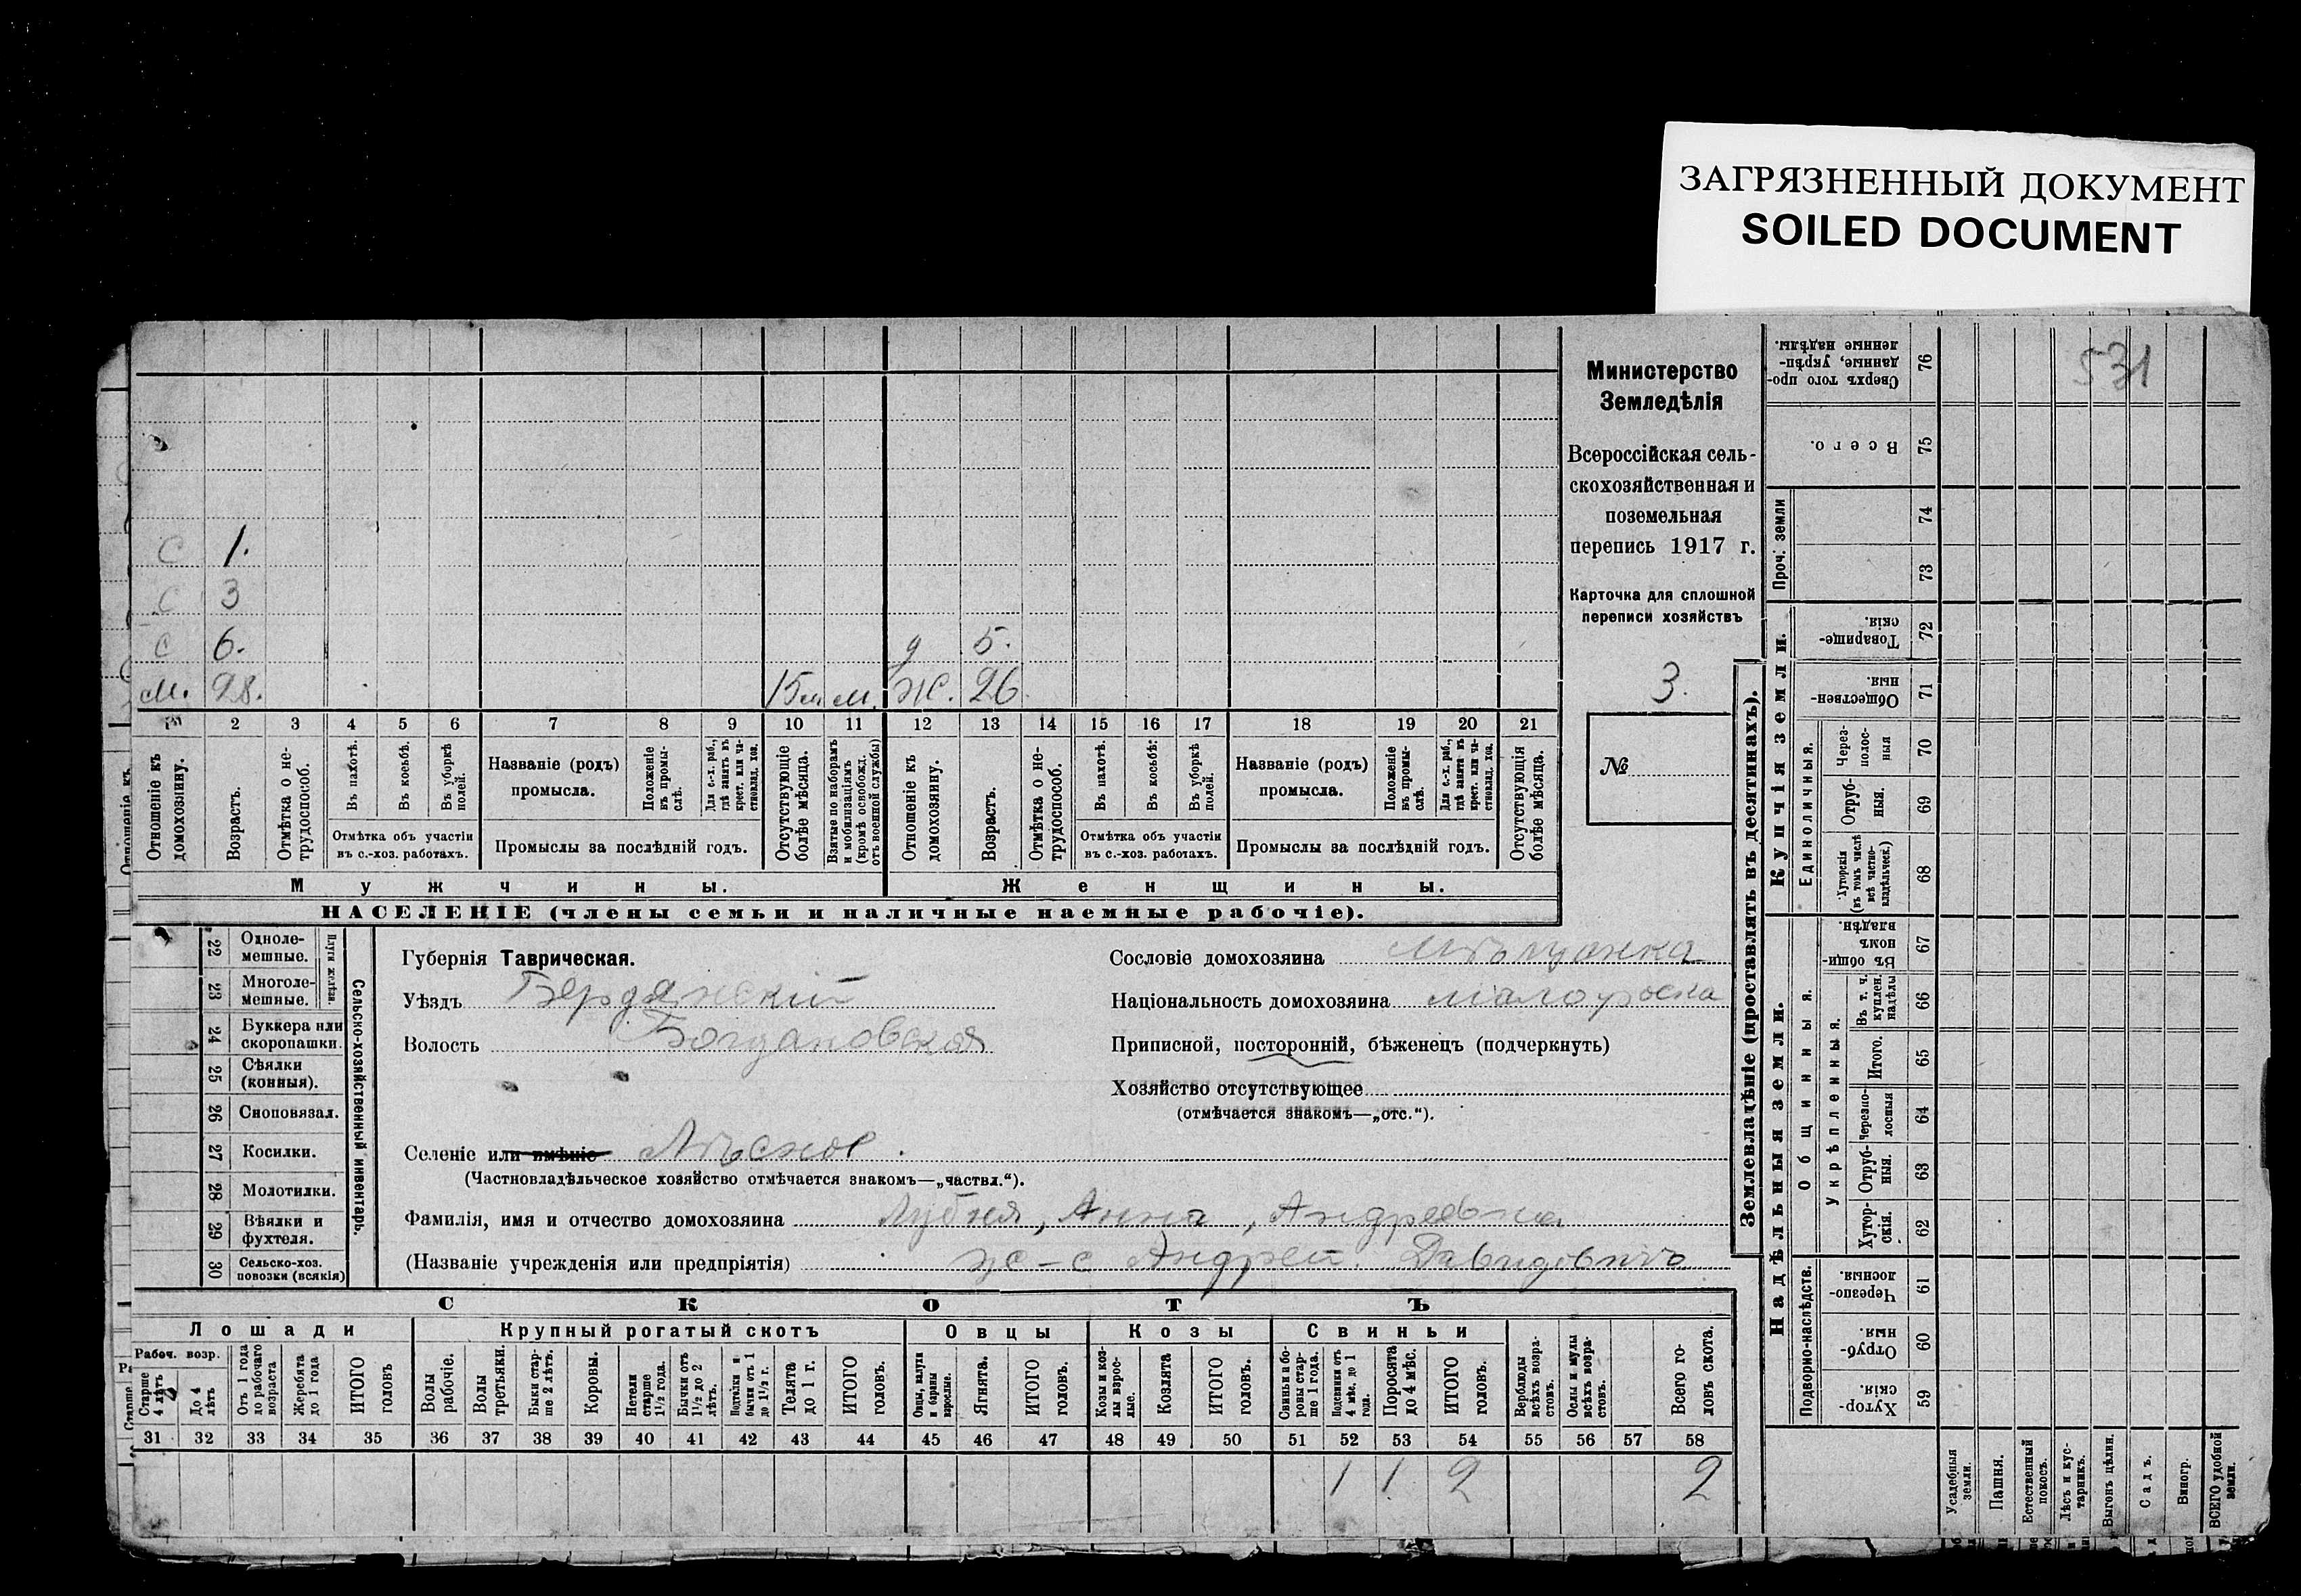 ЗАГРЯЗНЕННЫЙ ДОКУМЕНТ
SOILED DOCUMENT
531
Министерство
Земледѣлія
Всероссійская сель-
скохозяйственная и
поземельная
перепись 1917 г.
Карточка для сплошной
переписи хозяйствъ
3.
№
с 1.
с 3
с 6. д 5.
м. 28. 15 м м. ж. 26
1 2 3 4 5 6 7 8 9 10 11 12 13 14 15 16 17 18 19 20 21
Отношеніе къ домохозяину.
Возрастъ.
Отмѣтка о не-трудоспособ.
Въ пахотѣ.
Въ косьбѣ.
Въ уборкѣ полей.
Отмѣтка объ участіи
въ с.-хоз. работахъ.
Названіе (родъ)
промысла.
Положеніе въ промы-слѣ.
Для с.-х. раб., гдѣ занятъ въ крест. или ча-стновлад. хоз.
Промыслы за послѣдній годъ.
Отсутствующіе болѣе мѣсяца.
Взятые по наборамъ и мобилизаціямъ (кромѣ освобожд. отъ военной службы)
Отношеніе къ домохозяину.
Возрастъ.
Отмѣтка о не-трудоспособ.
Въ пахотѣ.
Въ косьбѣ.
Въ уборкѣ полей.
Отмѣтка объ участіи
въ с.-хоз. работахъ.
Названіе (родъ)
промысла.
Положеніе въ промы-слѣ.
Для с.-х. раб., гдѣ занята въ крест. или ча-стновлад. хоз.
Промыслы за послѣдній годъ.
Отсутствующія болѣе мѣсяца.
Мужчины.
Женщины.
НАСЕЛЕНІЕ (члены семьи и наличные наемные рабочіе).
№
22 Одноле-мешные.
23 Многоле-мешные.
Плуги желѣзн.
24 Буккера или скоропашки.
25 Сѣялки (конныя).
26 Сноповязал.
27 Косилки.
28 Молотилки.
29 Вѣялки и фухтеля.
30 Сельско-хоз. повозки (всякія)
Сельско-хозяйственный инвентарь.
Губернія Таврическая.
Уѣздъ Бердянскій
Волость Богдановская
Селеніе или имѣніе Лѣсное.
(Частновладѣльческое хозяйство отмѣчается знакомъ—„частвл.“).
Фамилія, имя и отчество домохозяина Лубня, Анна, Андреевна
(Названіе учрежденія или предпріятія) ж-с Андрей Давидовичъ
Сословіе домохозяина мѣщанка
Національность домохозяина малоросска
Приписной, посторонній, бѣженецъ (подчеркнуть)
Хозяйство отсутствующее
(отмѣчается знакомъ—„отс.“).
СКОТЪ
Лошади
Крупный рогатый скотъ
Овцы
Козы
Свиньи
Рабоч. возр.
Старше 4 лѣтъ
До 4 лѣтъ
Отъ 1 года до рабочаго возраста
Жеребята до 1 года
ИТОГО головъ
Волы рабочіе.
Волы третьяки.
Быки стар-ше 2 лѣтъ.
Коровы.
Нетели старше 1½ года.
Бычки отъ 1½ до 2 лѣтъ.
Подтелки и бычки отъ 1 до 1½ г.
Телята до 1 г.
ИТОГО головъ.
Овцы, валухи и бараны взрослые.
Ягнята.
ИТОГО головъ.
Козы и коз-лы взрос-лые.
Козлята
ИТОГО головъ.
Свиньи и бо-ровы стар-ше 1 года.
Подсвинки отъ 4 мѣс. до 1 года.
Поросята до 4 мѣс.
ИТОГО головъ.
Верблюды всѣхъ возра-стовъ.
Ослы и мулы всѣхъ возра-стовъ.
Всего го-ловъ скота.
31 32 33 34 35 36 37 38 39 40 41 42 43 44 45 46 47 48 49 50 51 52 53 54 55 56 57 58
1 1 2 2
Землевладѣніе (проставлять въ десятинахъ).
Сверхъ того про-данные, укрѣп-ленные надѣлы. 76
Всего. 75
Проч. земли 74
73
Купчія земли.
Товарище-скія. 72
Обществен-ныя. 71
Единоличныя.
Через-полос-ныя 70
Отруб-ныя. 69
Хуторскія (въ томъ числѣ всѣ частно-владѣльческ.) 68
Надѣльныя земли.
Общинныя.
Въ общин-номъ владѣн. 67
Укрѣпленныя.
Въ т. ч. куплен. надѣлы 66
Итого. 65
Черезпо-лосныя 64
Отруб-ныя. 63
Хутор-скія. 62
Подворно-наслѣдств.
Черезпо-лосныя. 61
Отруб-ныя. 60
Хутор-скія. 59
Усадебныя земли.
Пашня.
Естественный покосъ.
Лѣсъ и кус-тарникъ.
Выгонъ цѣлин.
Садъ.
Виногр.
ВСЕГО удобной земли.